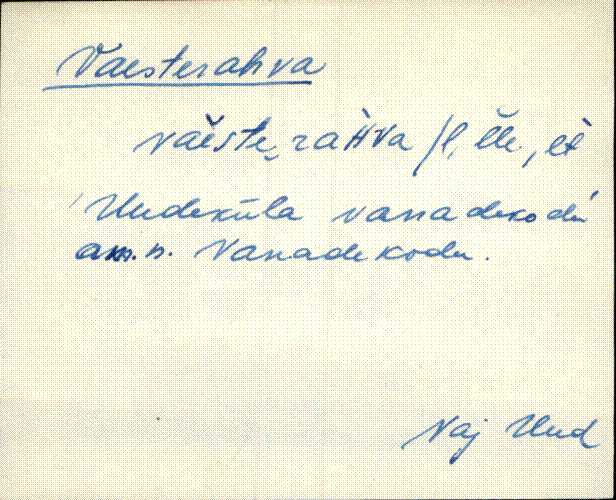 Vaesterahva
váeste‿ràHva /l, lle., lt
'Uudeküla vanadekodu'
am.n. Vanadekodu.
Vaj Uud